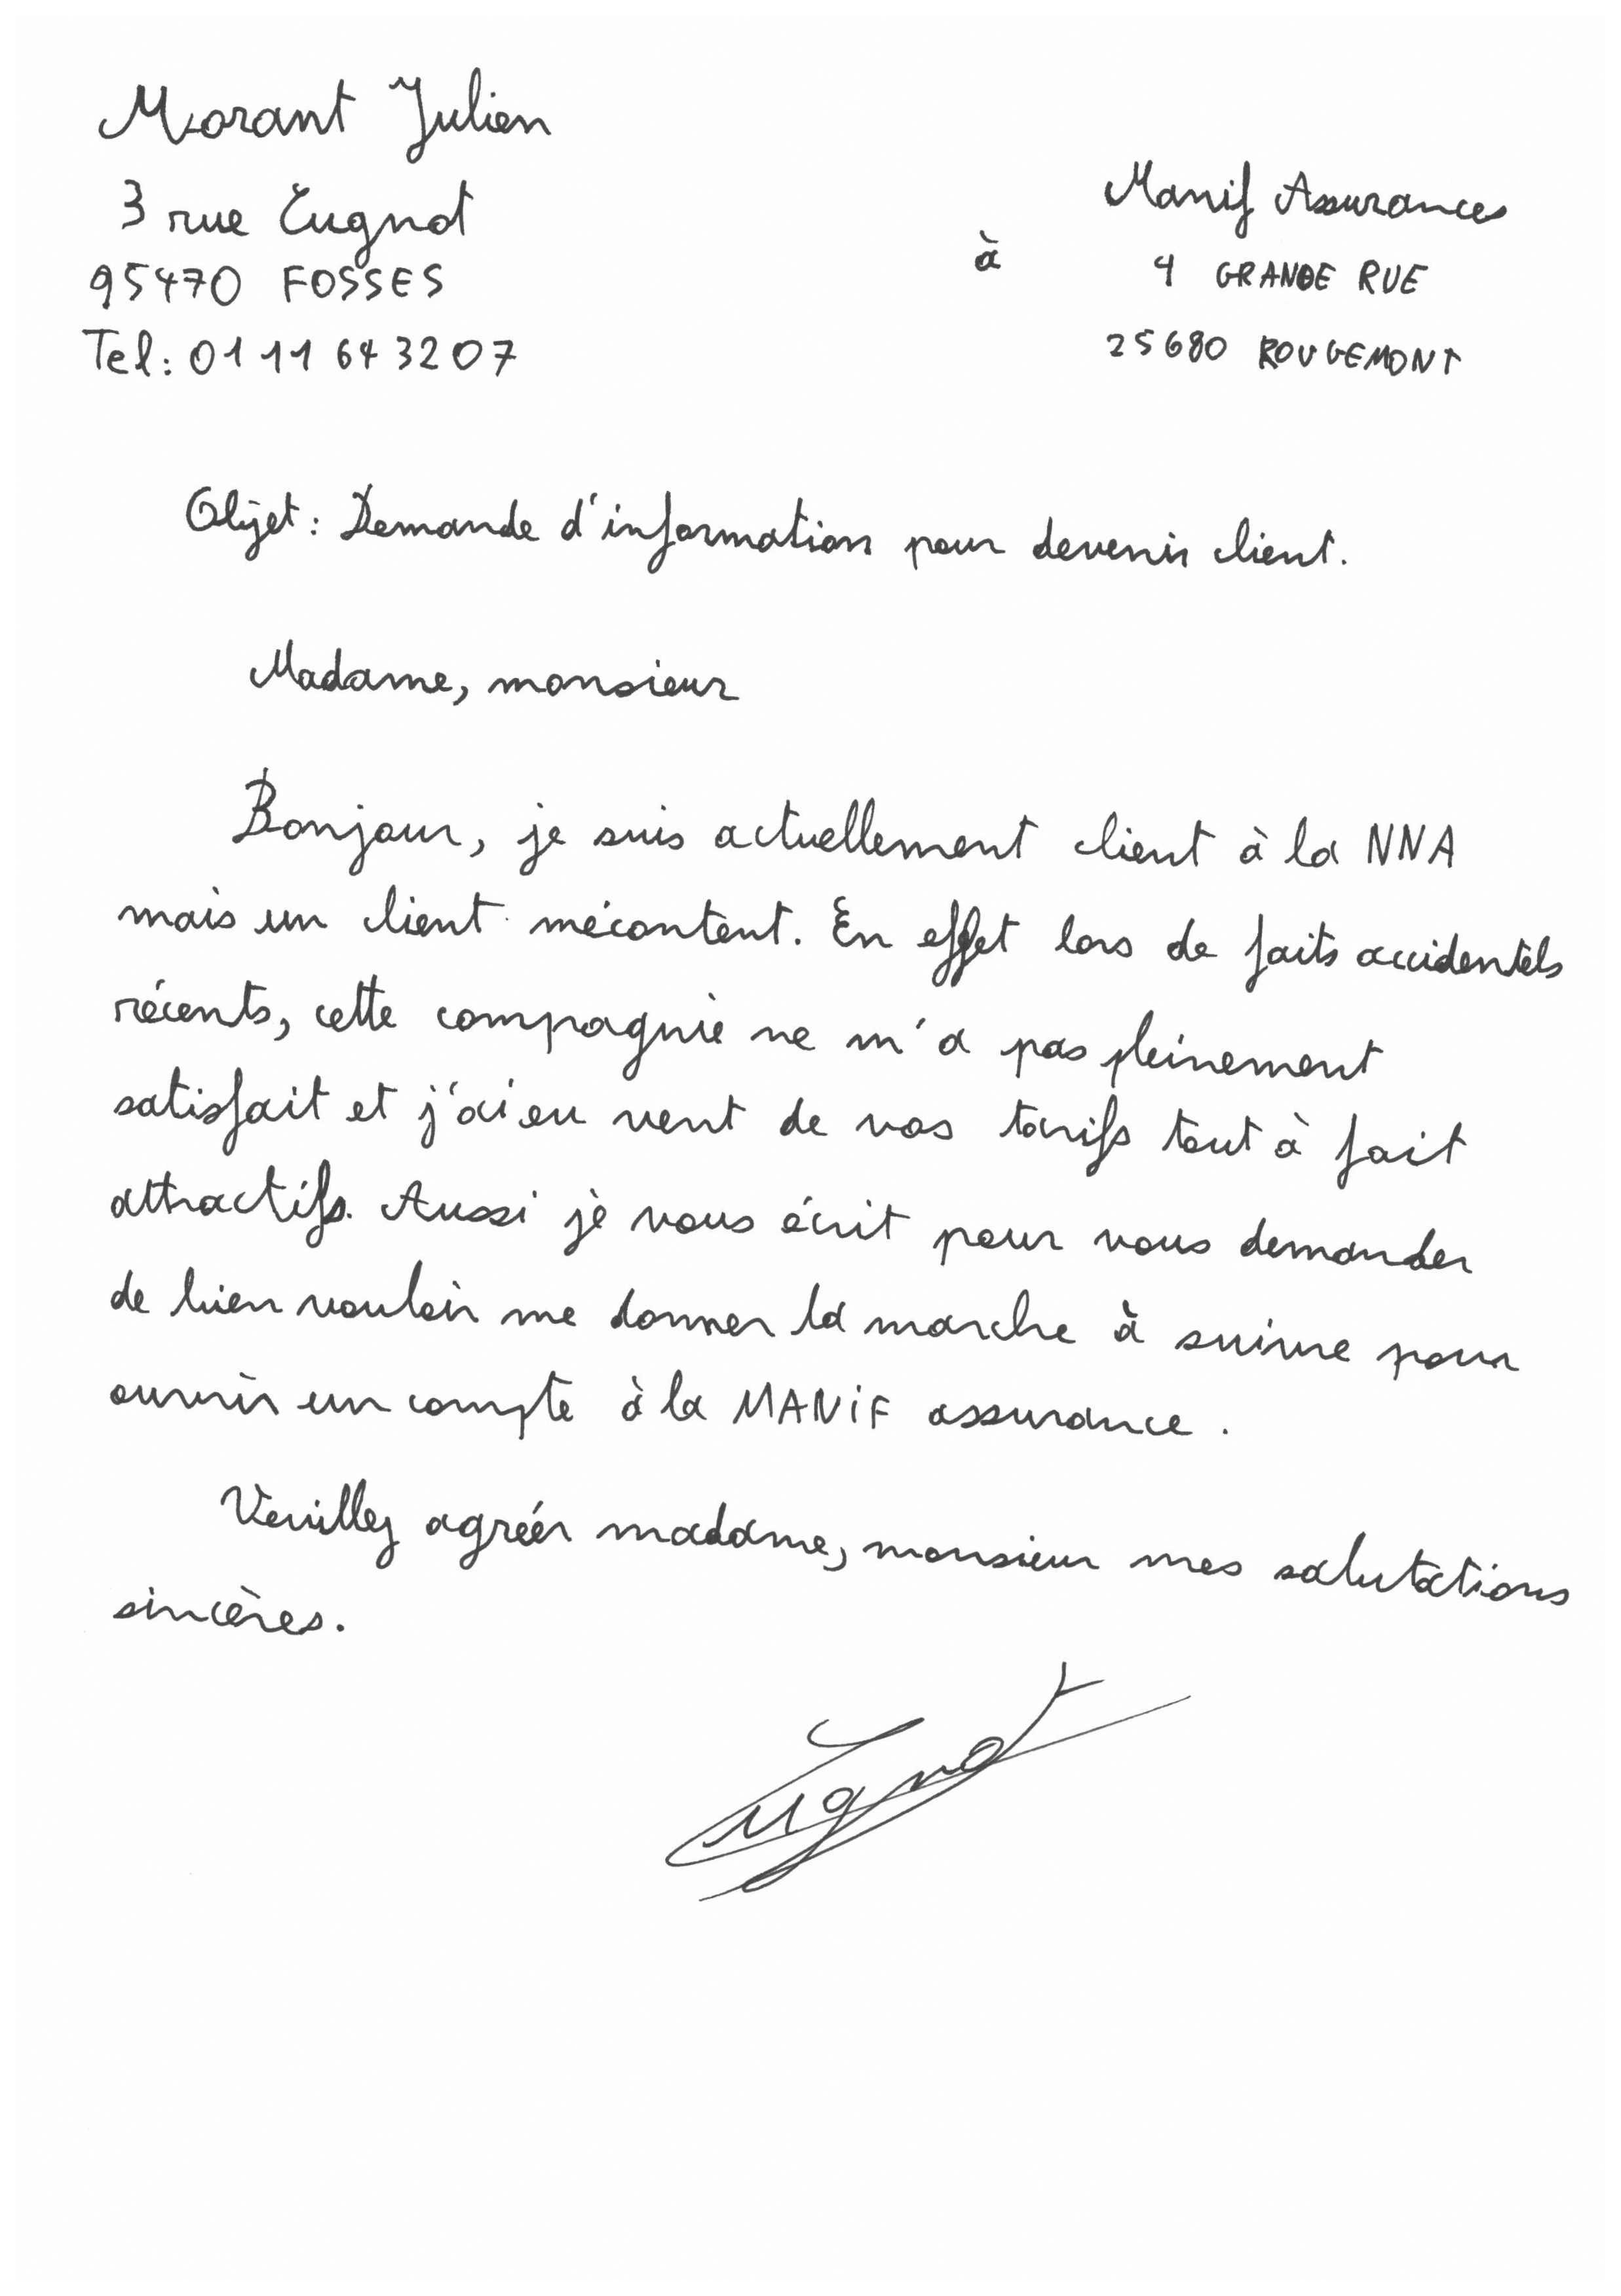 Morant Julien
3 rue Cugnot
95470 FOSSES
Tel: 01 11 64 32 07
Manif Assurances
à 4 GRANDE RUE
25680 ROUGEMONT
Objet: Demande d'information pour devenir client.
Madame, monsieur
Bonjour, je suis actuellement client à la NNA
mais un client mécontent. En effet lors de faits accidentels
récents, cette compagnie ne m'a pas pleinement
satisfait et j'ai eu vent de vos tarifs tout à fait
attractifs. Aussi je vous écrit pour vous demander
de bien vouloir me donner la marche à suivre pour
ouvrir un compte à la MANIF assurance.
Veuillez agréer madame, monsieur mes salutations
sincères.
Cugnot